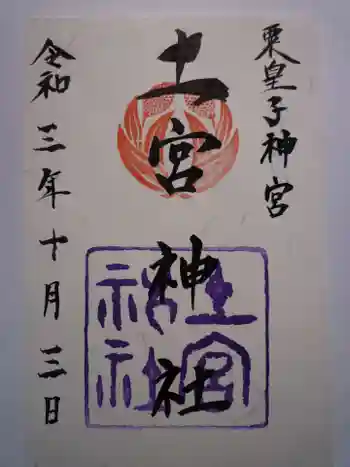 栗皇子神宮
土宮神社
令和三年十月三日
土宮
神社